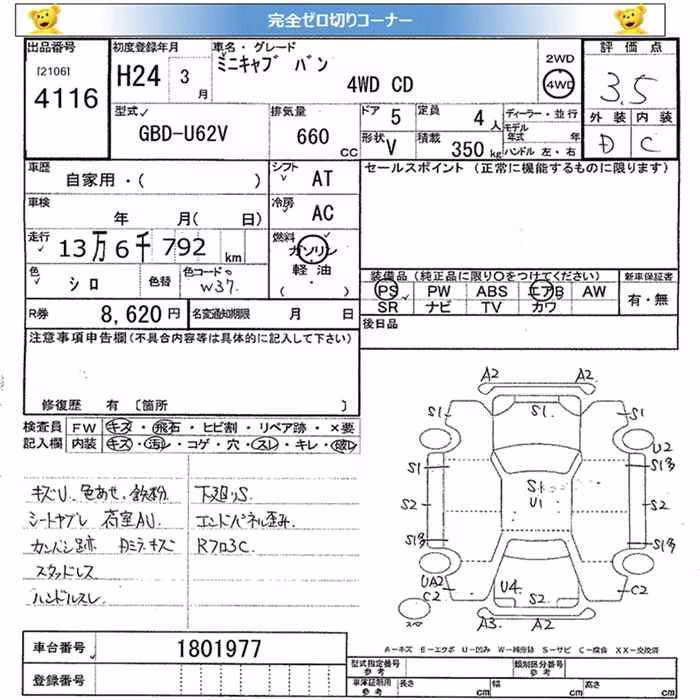 完全ゼロ切りコーナー
出品番号
[2106]
4116
初度登録年月
H24 3 月
車名・グレード
ミニキャブ バン
4WD CD
2WD
4WD
評価点
3.5
外装 内装
D C
型式
GBD-U62V
排気量
660 CC
ドア 5
定員 4 人
形状 V
積載 350 kg
ディーラー・並行
モデル年式 年
ハンドル 左・右
車歴
自家用・( )
シフト AT
車検
年 月( 日)
冷房 AC
走行
13万6千792 km
燃料 ガソリン
軽油
( ・ )
色 シロ 色替
色コード W37
R券 8,620 円
名変通知期限 月 日
セールスポイント (正常に機能するものに限ります)
装備品 (純正品に限り○をつけてください)
PS PW ABS エアB AW
SR ナビ TV カワ
新車保証書
有・無
後日品
注意事項申告欄(不具合内容等は具体的に記入して下さい)
修復歴 有 〔箇所 〕
検査員 FW キズ・飛石・ヒビ割・リペア跡・×要
記入欄 内装 キズ・汚レ・コゲ・穴・スレ・キレ・破レ
キズU 色あせ、飲粉 下廻りS
シートヤブレ 荷室AU エンドパネル歪み
カンバン跡 Dミラーキズ Rフロ3C
スタッドレス
ハンドルスレ
A2 A2
S1 S1 S1
U2
S1 S1多
S1
U1
S2 S2
S1多 S1多
UA2
C2 U4 S2 C2
スペ
A3 A2
車台番号 1801977
登録番号
A-キズ E-エクボ U-凹み W-補修跡 S-サビ C-腐食 XX-交換済
型式指定番号 参考
類別区分番号 参考
車庫証明用 参考 長さ cm 幅 cm 高さ cm